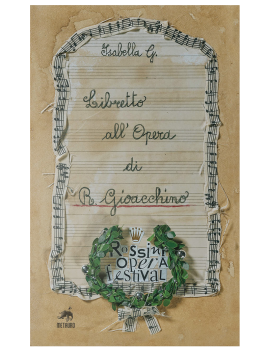 Isabella G.
Libretto
all'Opera
di
R. Gioacchino
Rossini
Opera
festival